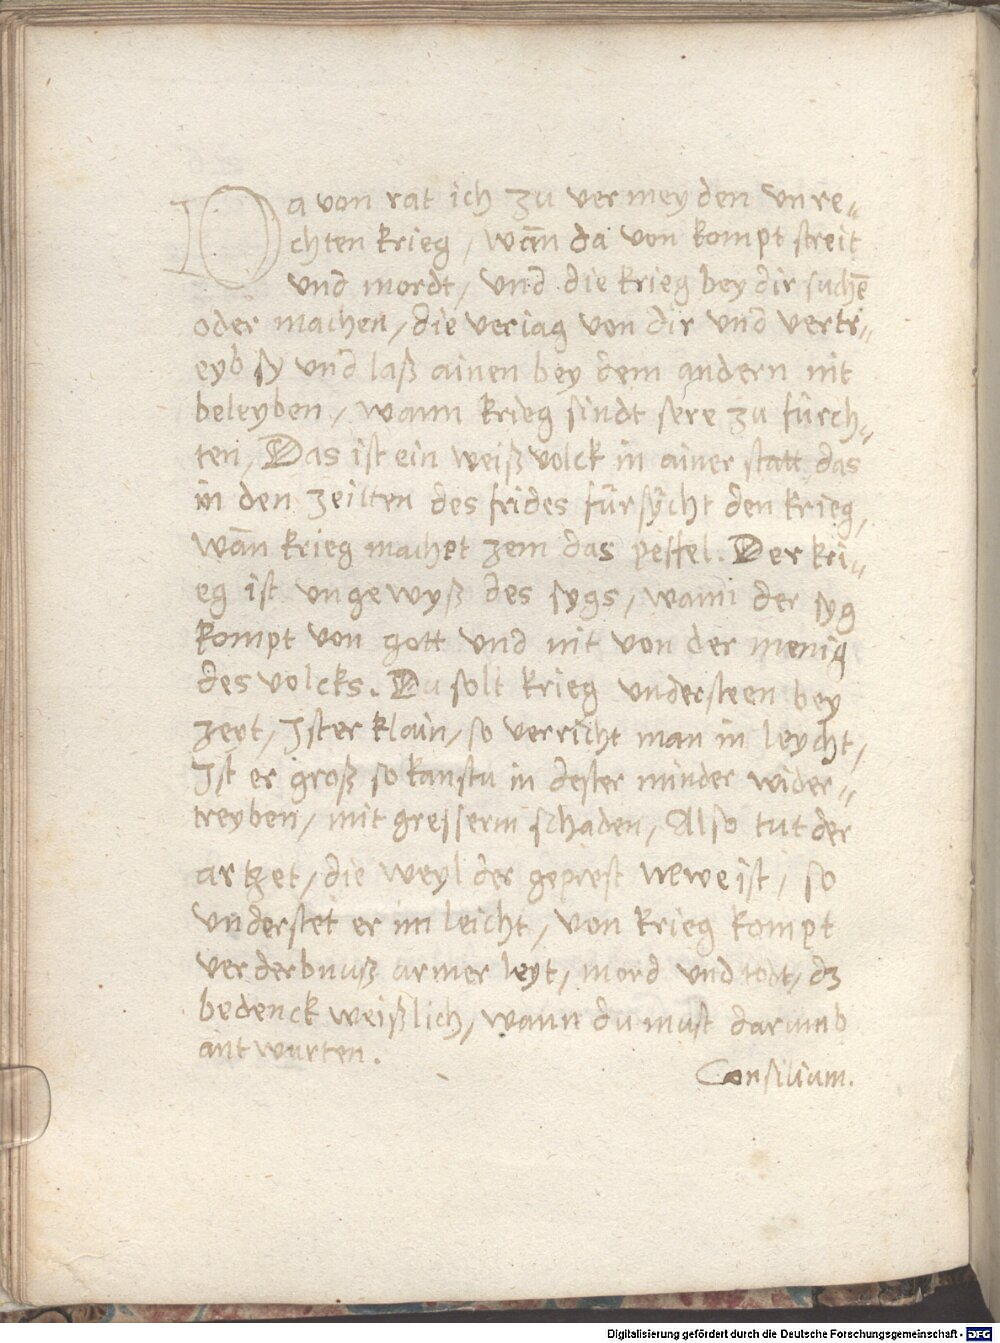 Da von rat ich zu vermeyden vnre„
chten krieg, wan̄ da von kompt streit
vnd mordt, vnd die krieg bey dir suchē
oder machen, die veriag von dir vnd vertr„
eyb sy vnd laß ainen bey dem andern nit
beleyben, wann krieg sindt sere zu fürch„
ten, Das ist ein weiß volck in ainer statt das
in den zeitten des frides fürsÿcht den krieg,
wan̄ krieg machet zem das peffel. Der kri„
eg ist ungewyß des sygs, wann der syg
kompt von gott vnd nit von der menig
des volcks. Du solt krieg understeen bey
zeyt, Ist er klain, so verricht man in leycht,
Ist er groß so kanstu in dester minder wider„
treyben, mit gresserm schaden, Also tut der
artzet, die weyl der geprest newe ist, so
understet er im leicht, von krieg kompt
verderbnuß armer leyt, mord vnd todt, dz
bedenck weißlich, wann du must darumb
antwurten.
Consilium.
Digitalisierung gefördert durch die Deutsche Forschungsgemeinschaft - DFG